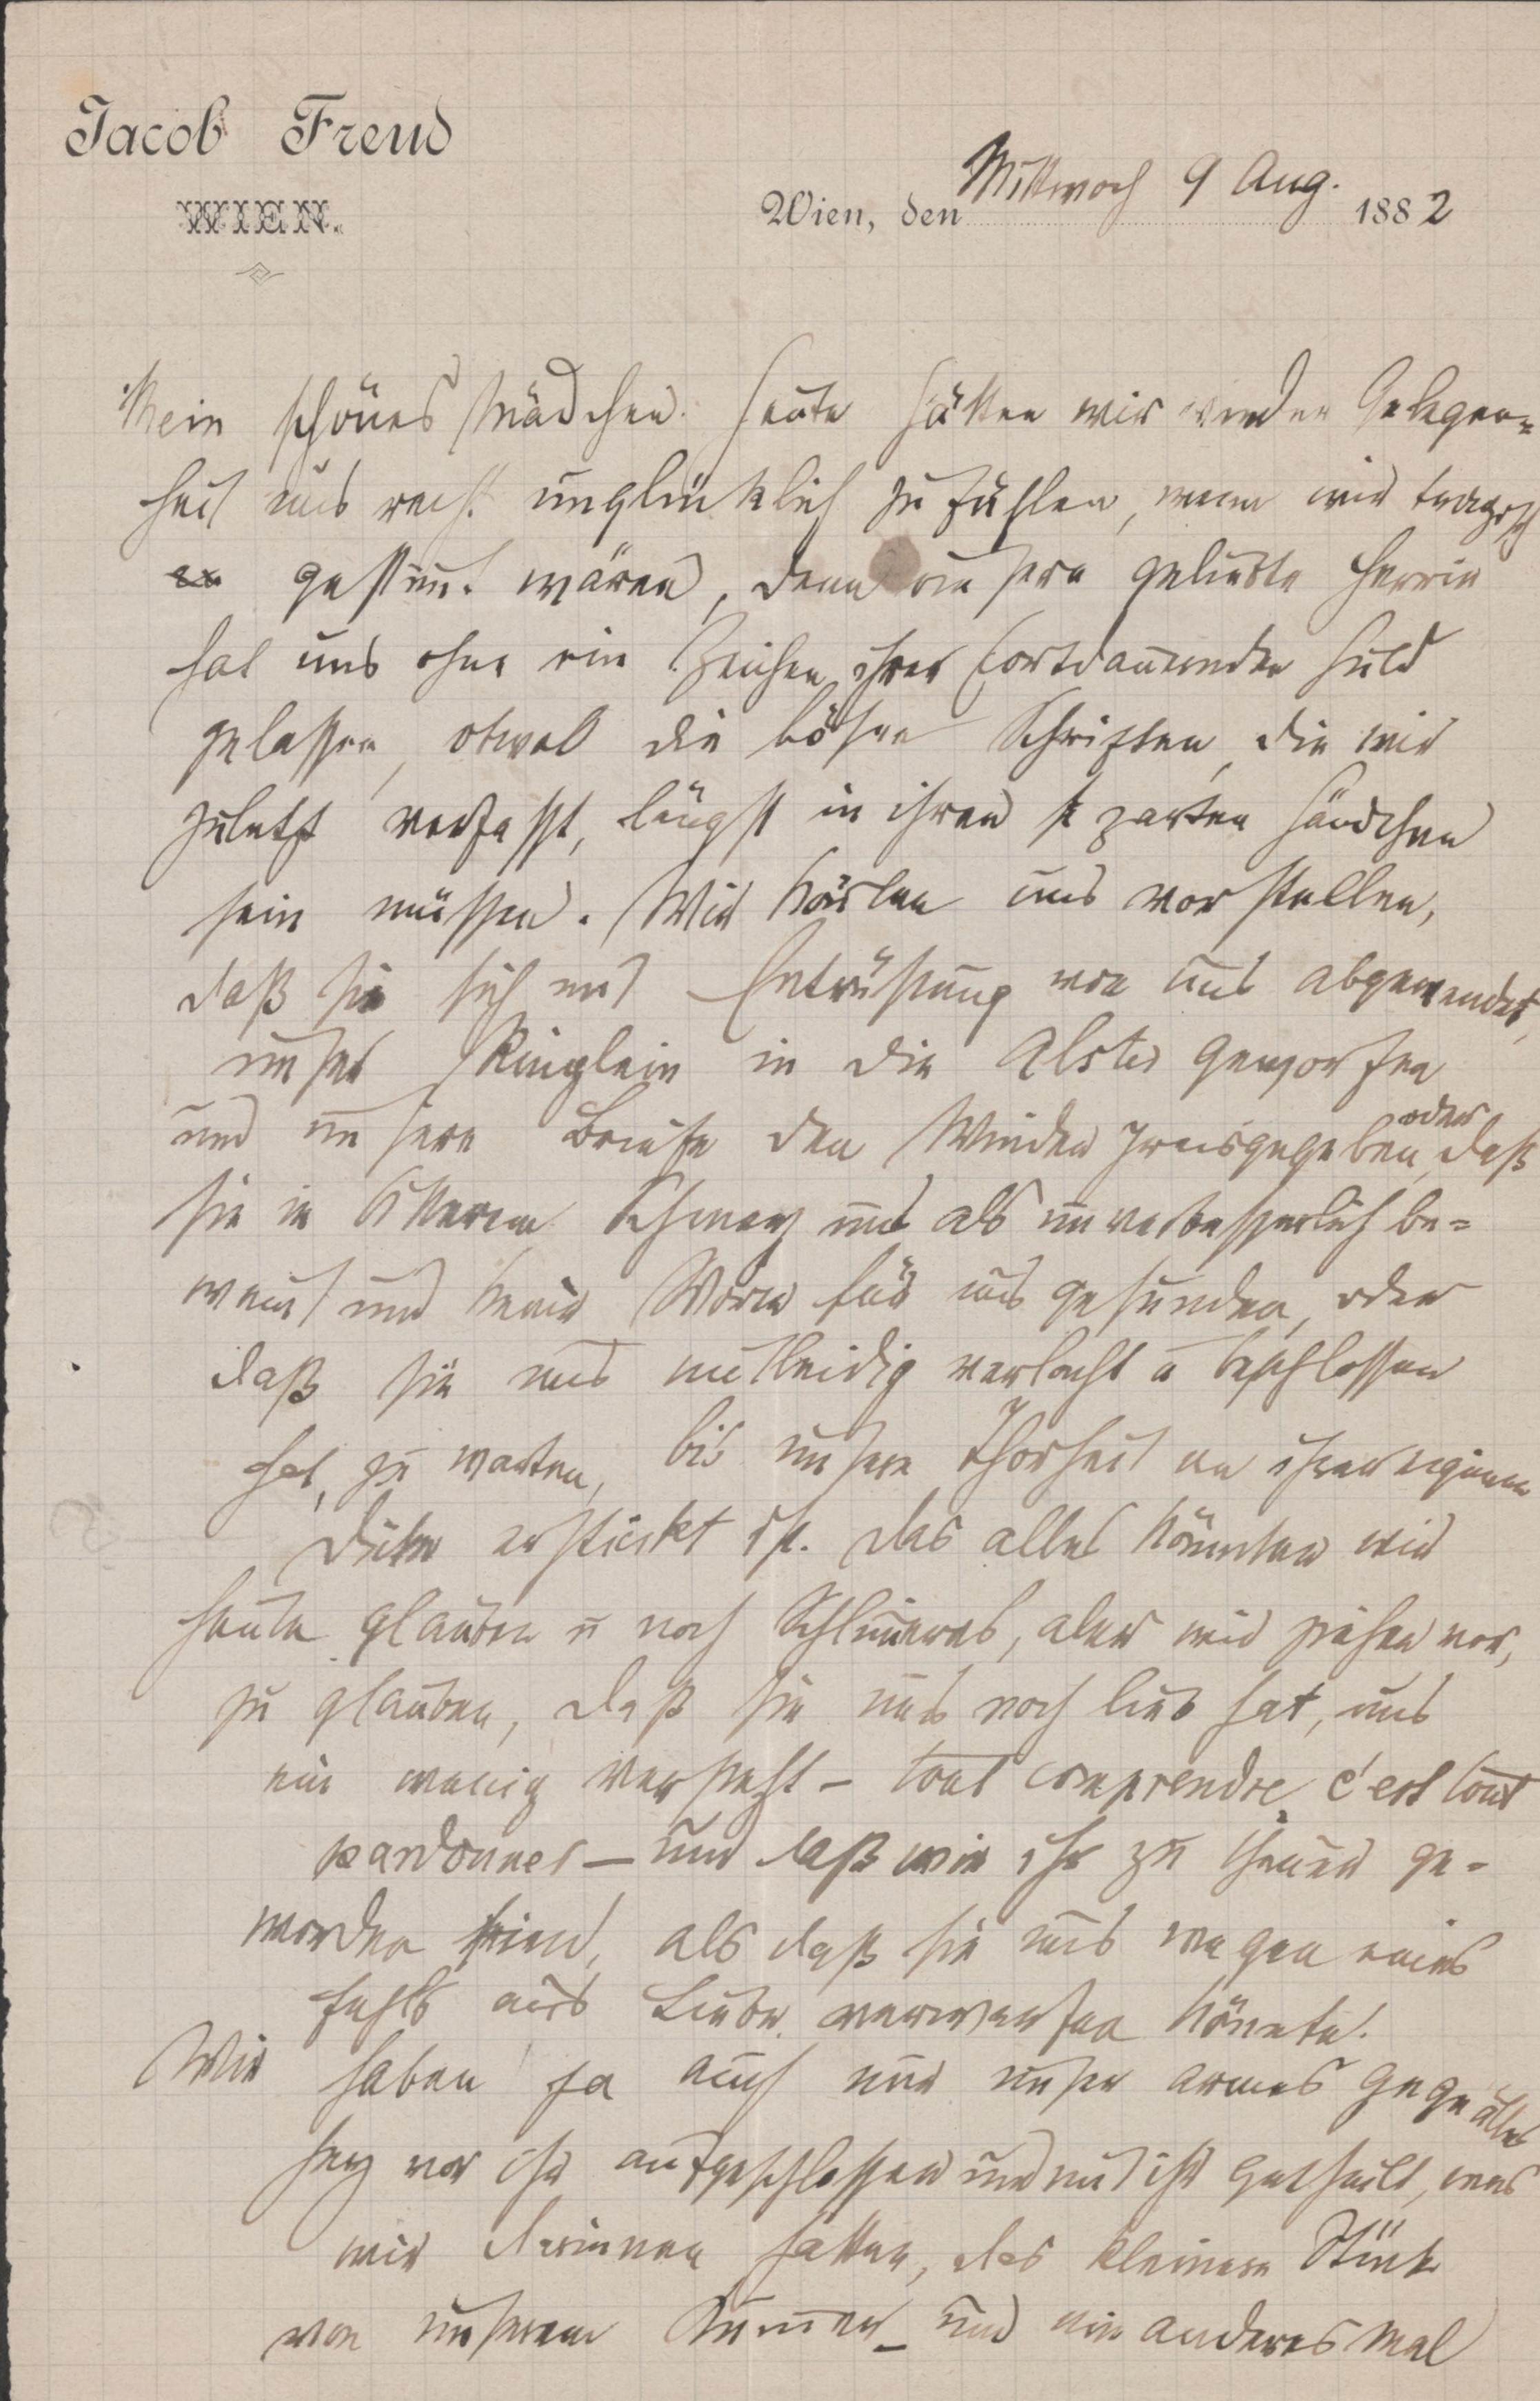 Jacob Freud
WIEN.
Wien, den Mittwoch 9 Aug. 1882
Mein schönes Mädchen. Heute hätten wir wieder Gelegen=
heit uns recht unglücklich zu fühlen, wenn wir tragisch
gestimmt wären, denn unsere geliebte Herrin
hat uns ohne ein Zeichen ihrer fortdauernden Huld
gelassen, obwol die bösen Schriften, die wir
zuletzt verfasst, längst in ihren zarten Händchen
sein müssen. Wir könten uns vorstellen,
daß sie sich mit Entrüstung von uns abgewendet,
unser Ringlein in die Alster geworfen
und unsere Briefe den Winden preisgegeben, oder daß
sie in bitterem Schmerz uns als unverbesserlich be=
weint und keine Worte für uns gefunden, oder
daß sie uns mitleidig verlacht u beschlossen
hat, zu warten, bis unsere Thorheit an ihrer eigenen
erstickt ist. Das alles könnten wir
heute glauben u noch Schlimeres, aber wir ziehen vor,
zu glauben, daß sie uns noch lieb hat, uns
ein wenig versteht – tout comprendre c'est tout
pardonner – und daß wir ihr zu theuer ge-
worden sind, als daß sie uns wegen eines
Fehls aus Liebe verwerfen könnte.
Wir haben ja auch nur unser armes
Herz vor ihr aufgeschlossen und mit ihr getheilt, was
wir darinnen hatten, das kleinere Stück
von unserem Kummer – und ein anderes Mal